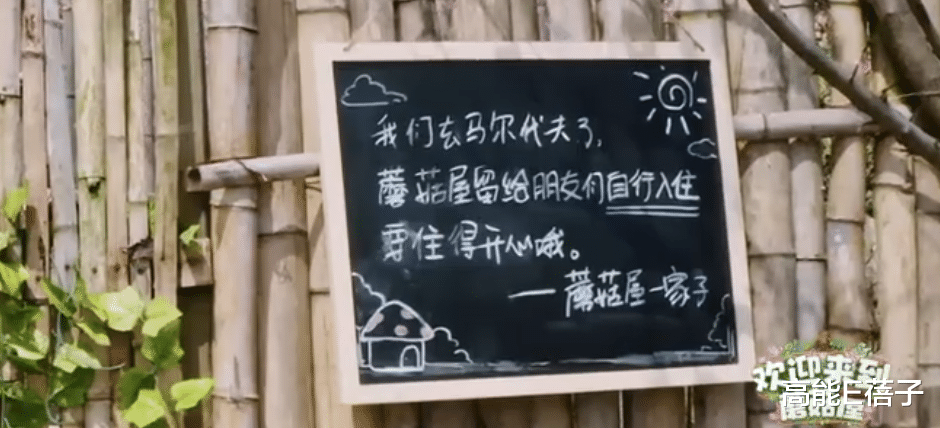 我们去马尔代夫了,
蘑菇屋留给朋友们自行入住
要住得开心哦。
——蘑菇屋一家子
欢迎来到
蘑菇屋
高能E蓓子